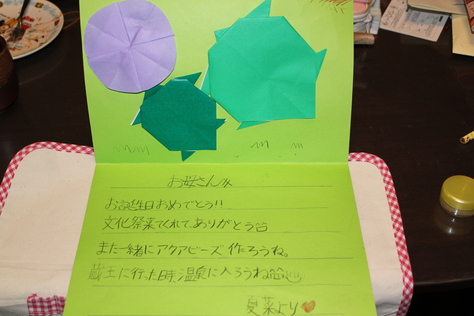 お母さんへ
お誕生日おめでとう!!
文化祭来てくれてありがとう
また一緒にアクアビーズ作ろうね。
蔵王に行った時、温泉に入ろうね
夏菜より♥